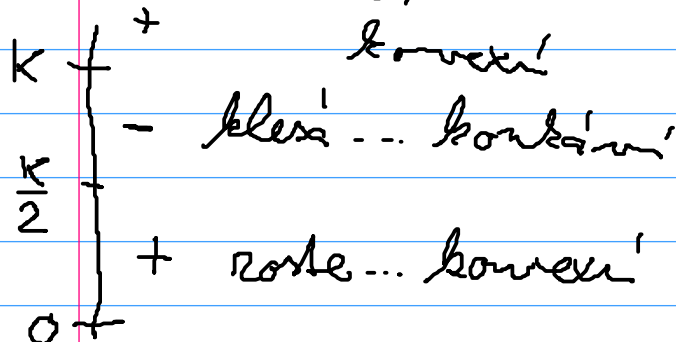 +
K konvexní
- klesá ... konkávní
K/2
+ roste ... konvexní
0